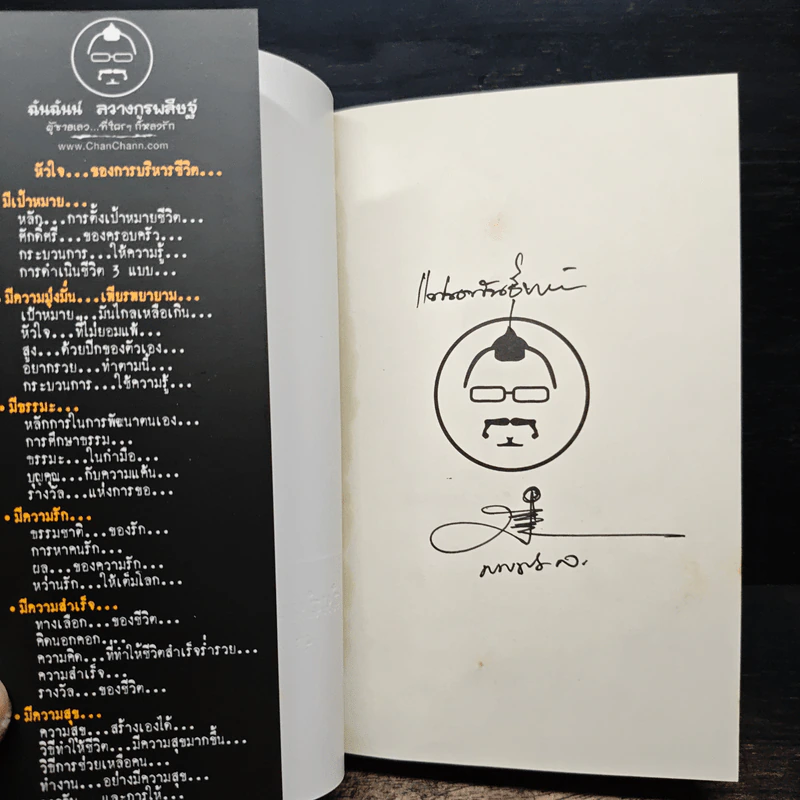 ฉันฉันน์ ลวางกูรพสิษฐ์
ผู้ชายเลว...ที่ใครๆ ก็หลงรัก
www.ChanChann.com
หัวใจ...ของการบริหารชีวิต...
มีเป้าหมาย...
หลัก...การตั้งเป้าหมายชีวิต...
ศักดิ์ศรี...ของครอบครัว...
กระบวนการ...ให้ความรู้...
การดำเนินชีวิต 3 แบบ...
มีความมุ่งมั่น...เพียรพยายาม...
เป้าหมาย...มันไกลเหลือเกิน...
หัวใจ...ที่ไม่ยอมแพ้...
สูง...ด้วยปีกของตัวเอง...
อยากรวย...ทำตามนี้...
กระบวนการ...ใช้ความรู้...
• มีธรรมะ...
หลักการในการพัฒนาตนเอง...
การศึกษาธรรม...
ธรรมะ...ในกำมือ...
บุญคุณ...กับความแค้น...
รางวัล...แห่งการขอ...
• มีความรัก...
ธรรมชาติ...ของรัก...
การหาคนรัก...
ผล...ของความรัก...
หว่านรัก...ให้เต็มโลก...
• มีความสำเร็จ...
ทางเลือก...ของชีวิต...
คิดนอกคอก...
ความคิด...ที่ทำให้ชีวิตสำเร็จร่ำรวย...
ความสำเร็จ...
รางวัล...ของชีวิต...
• มีความสุข...
ความสุข...สร้างเองได้...
วิธีทำให้ชีวิต...มีความสุขมากขึ้น...
วิธีการช่วยเหลือคน...
ทำงาน...อย่างมีความสุข...
และการให้...